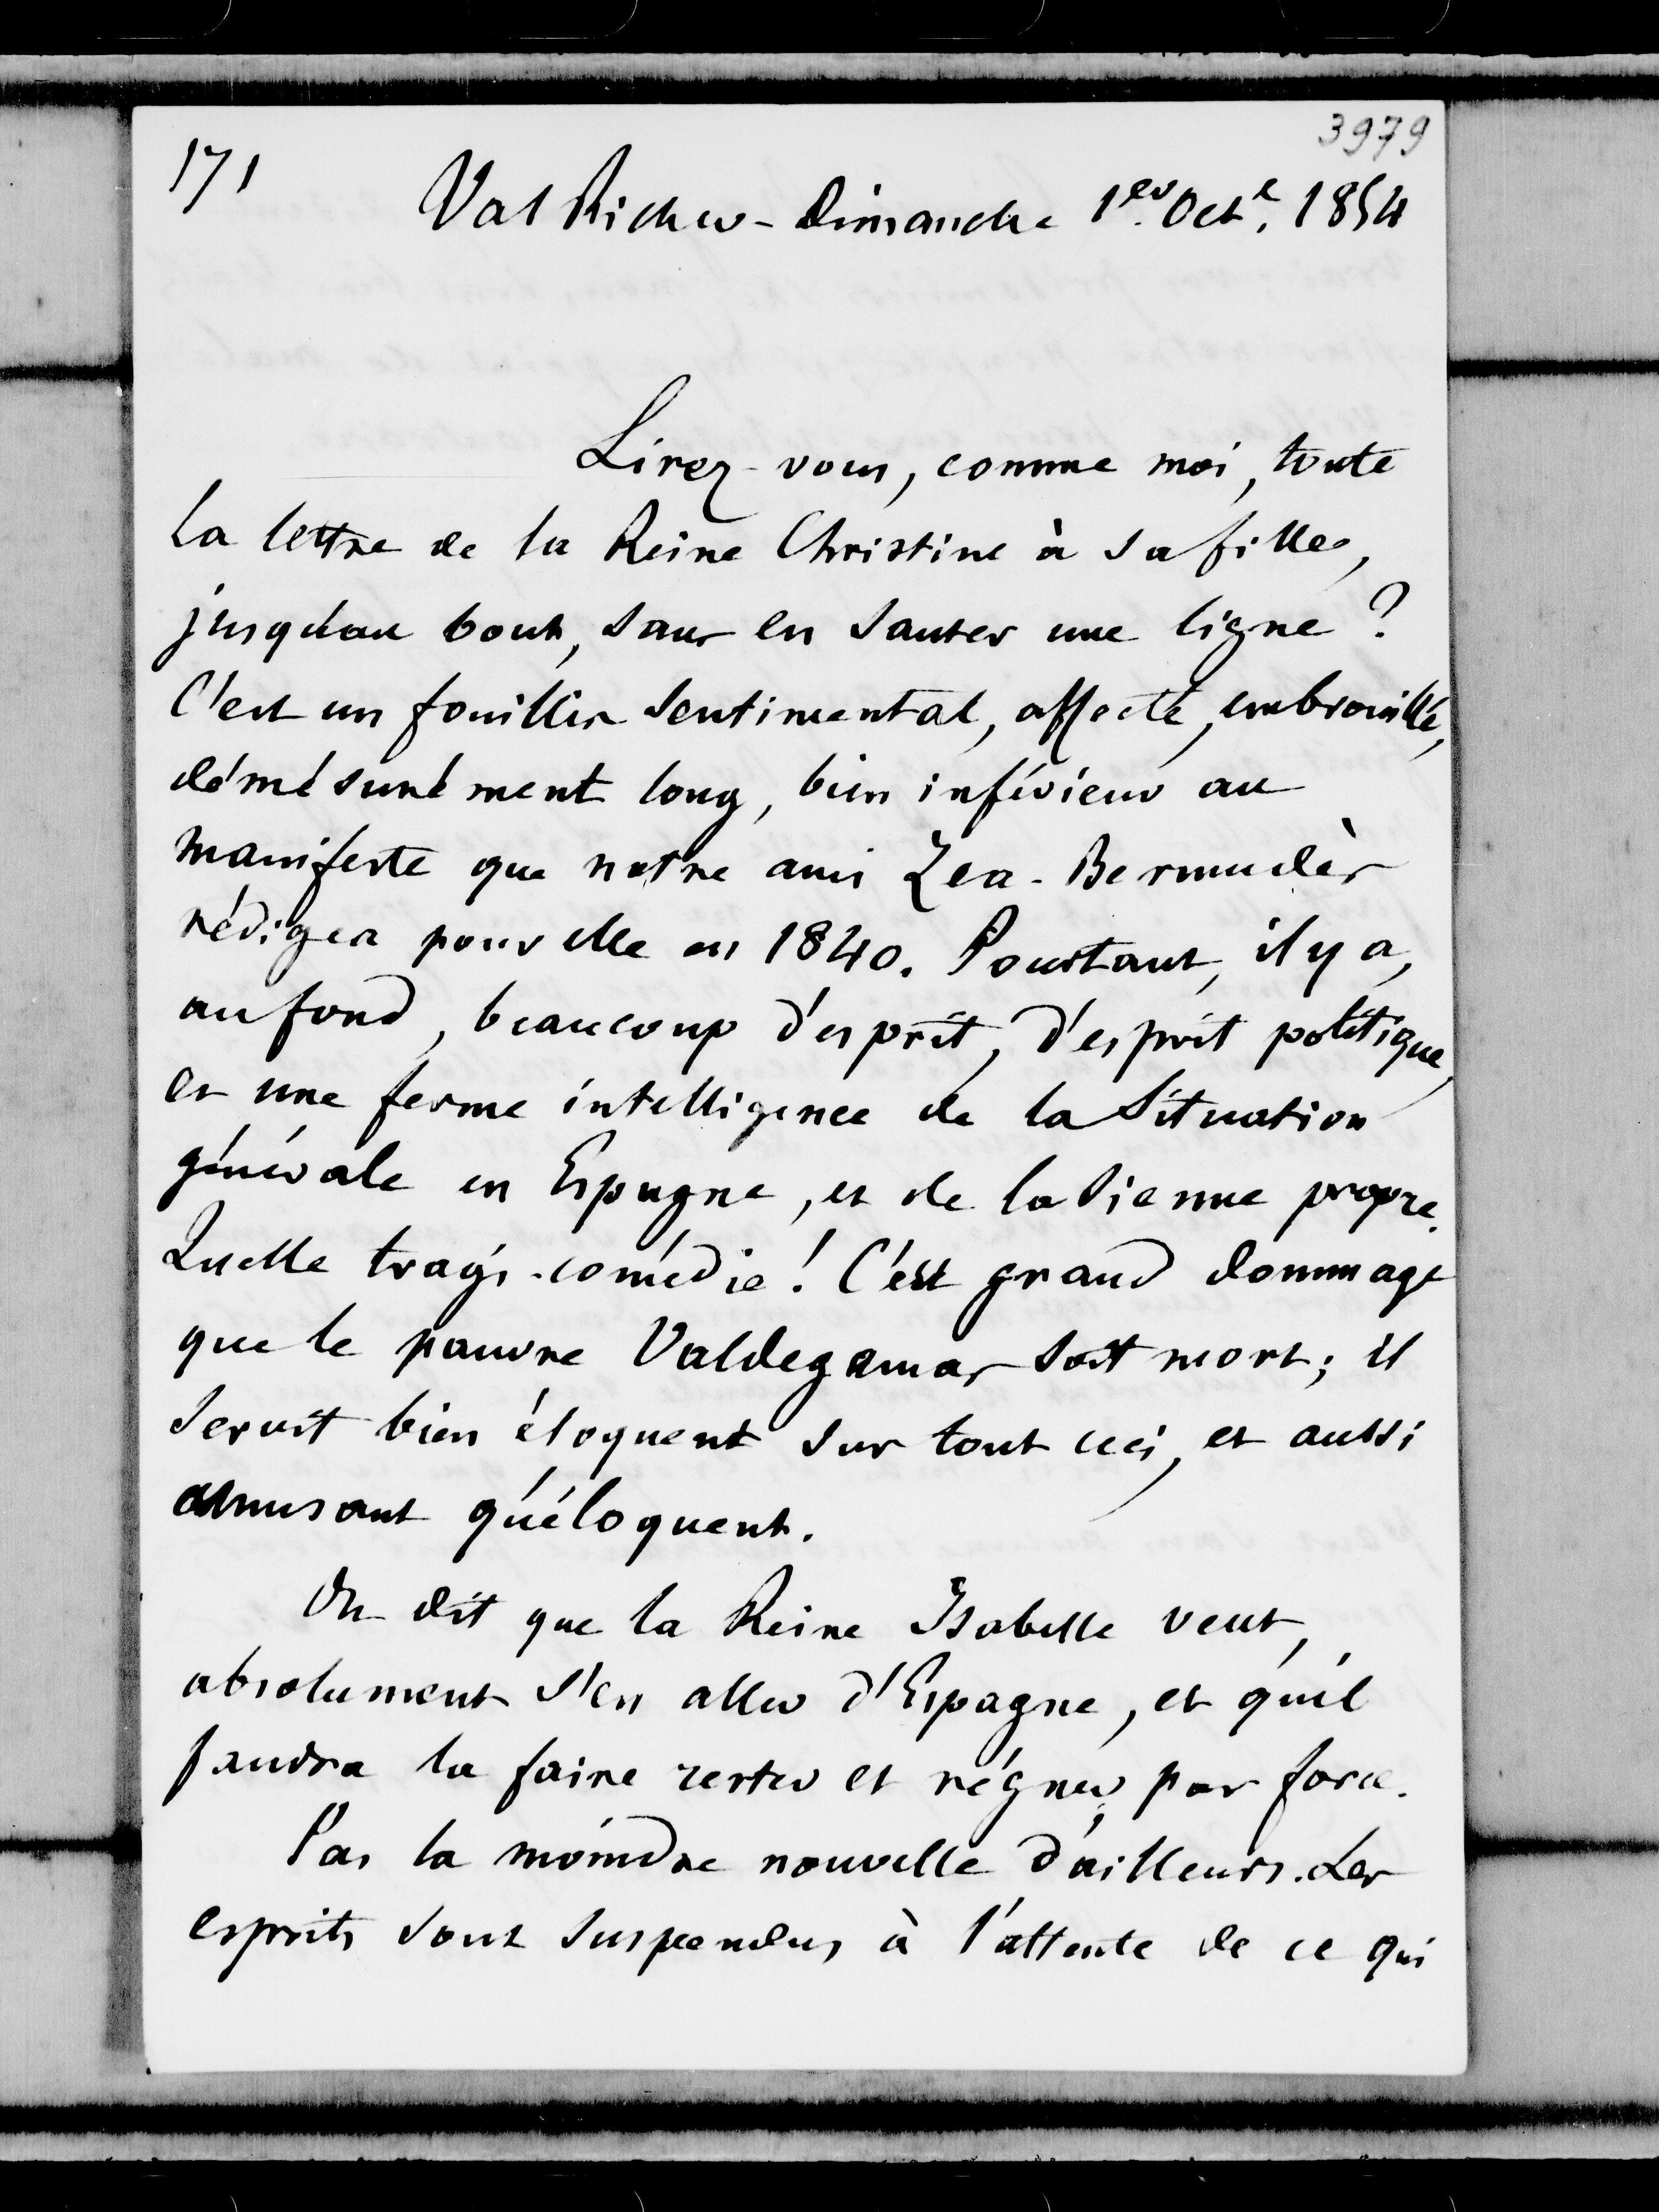 3979
171
Val Richer - Dimanche 1er Octe. 1854
Lirez-vous, comme moi, toute
la lettre de la Reine Christine à sa fille,
jusqu'au bout, sans en sauter une ligne ?
C'est un fouillis sentimental, affecté, embrouillé,
démésurément long, bien inférieur au
manifeste que notre ami Zéa-Bermudès
rédigea pour elle en 1840. Pourtant, il y a,
au fond, beaucoup d'esprit, d'esprit politique,
et une ferme intelligence de la situation
générale en Espagne, et de la sienne propre.
Quelle tragi-comédie ! C'est grand dommage
que le pauvre Valdegamas soit mort ; il
serait bien éloquent sur tout ceci, et aussi
amusant qu'éloquent.
On dit que la Reine Isabelle veut,
absolument s'en aller d'Espagne, et qu'il
faudra la faire rester et régner par force.
Pas la moindre nouvelle d'ailleurs. Les
esprits sont suspendus à l'attente de ce qui